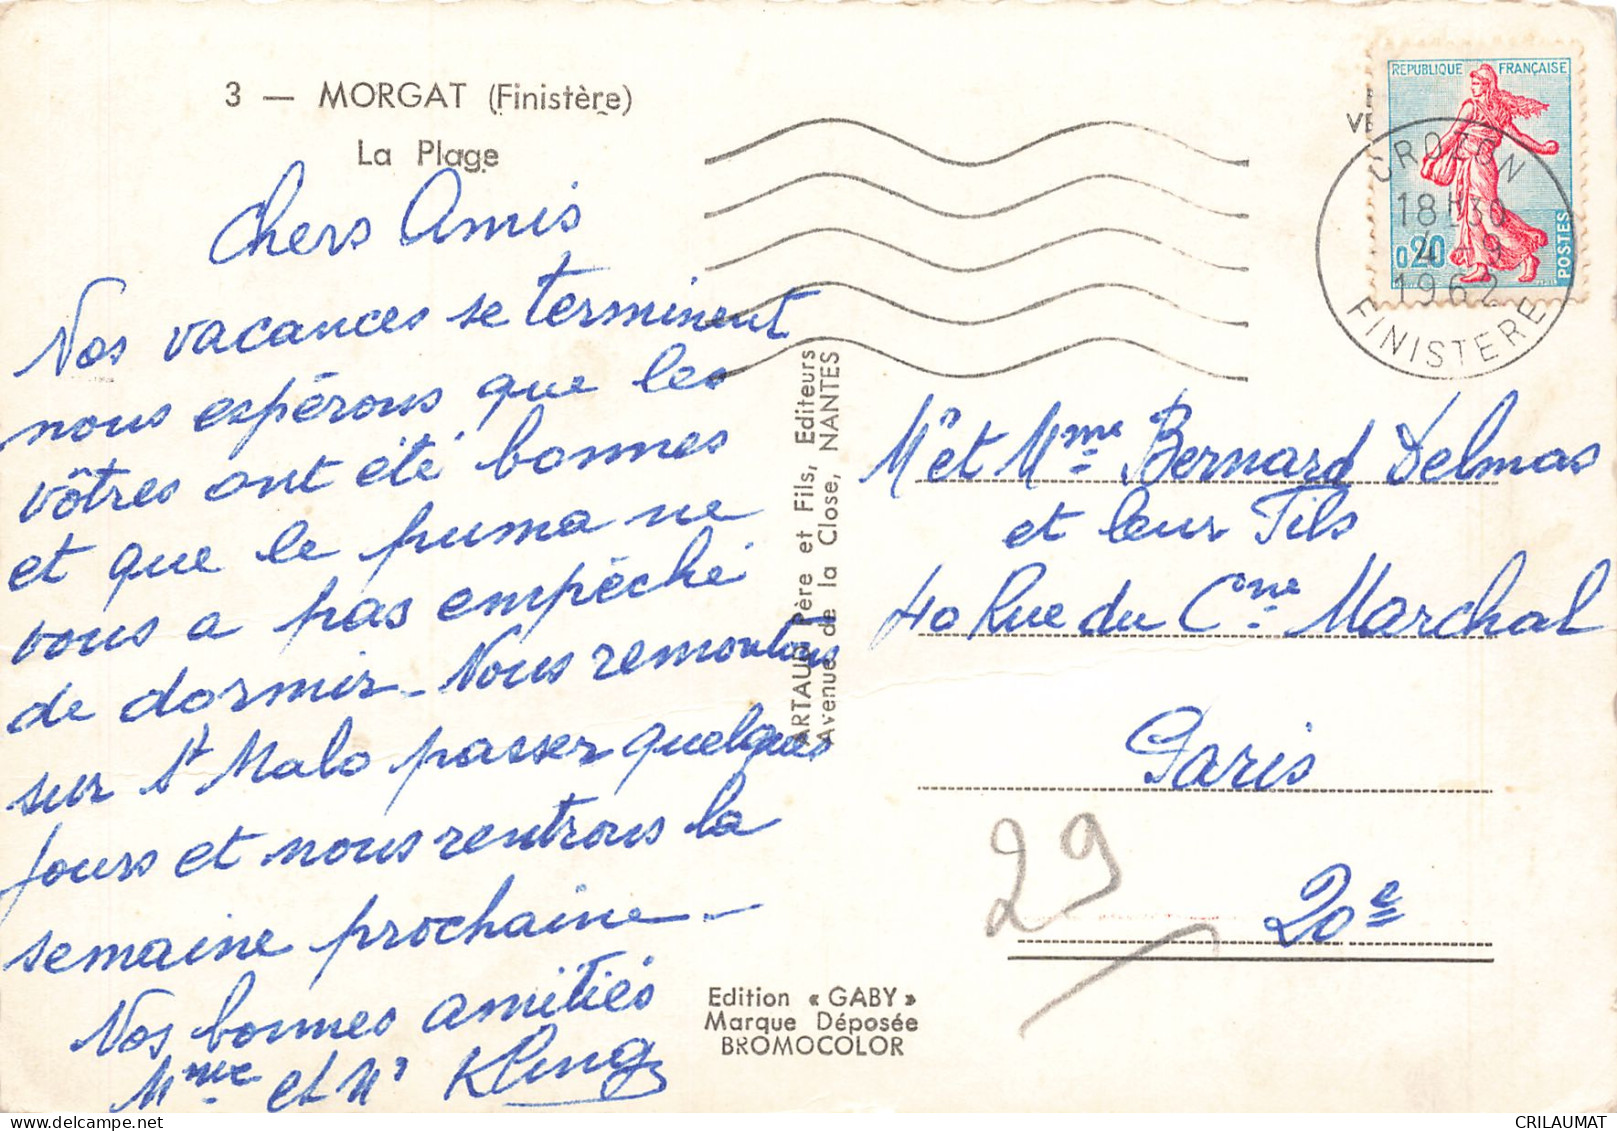 3 — MORGAT (Finistère)
La Plage
Chers Amis
Nos vacances se terminent
nous espérons que les
vôtres ont été bonnes
et que le puma ne
vous a pas empêché
de dormir - Nous remontons
sur St Malo passer quelques
jours et nous rentrons la
semaine prochaine -
Nos bonnes amitiés
Mme et Mr Kling
ARTAUD Père et Fils, Editeurs
Avenue de la Close, NANTES
Edition « GABY »
Marque Déposée
BROMOCOLOR
REPUBLIQUE FRANÇAISE
0,20
POSTES
VE
CROZON
18H30
4 - 9
1962
FINISTERE
Mr et Mme Bernard Delmas
et leur Fils
40 Rue du Cne Marchal
Paris
20e
29
CRILAUMAT